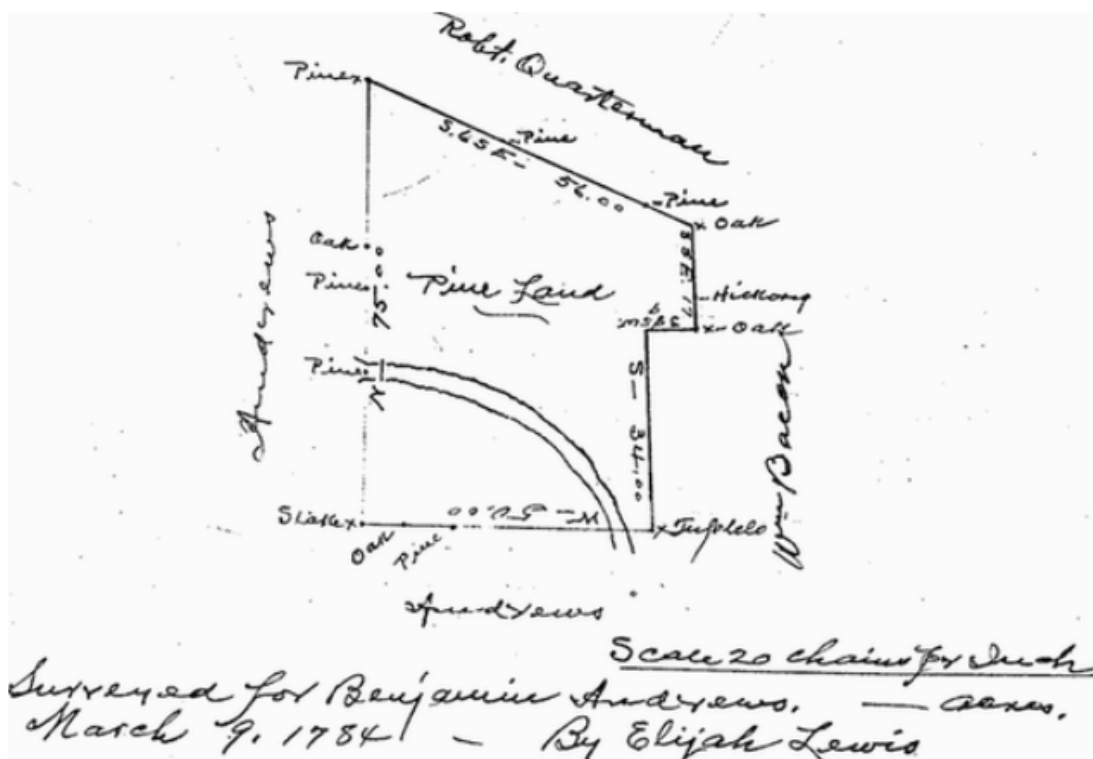 Robt. Quarterman
Pinex
Pine
S. 65 E— 56.00
Pine
x Oak
Oak
Pine
75.00
N
Pine Land
Hickory
x- Oak
Andrews
Pine
S— 34.00
Wm Bacon
Stakex
Oak
Pine
W— 50.00
x Tuphelo
Andrews
Scale 20 chains pr Inch
Surveyed for Benjamin Andrews. — acres.
March 9. 1784 — By Elijah Lewis